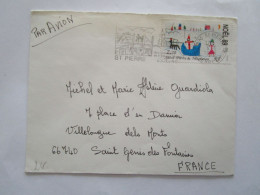 PAR AVION
ST PIERRE
Michel et Marie Hélène Guardiola
7 place d'en Damia
Villelongue dels Monts
66740 Saint Genis des Fontaines
FRANCE